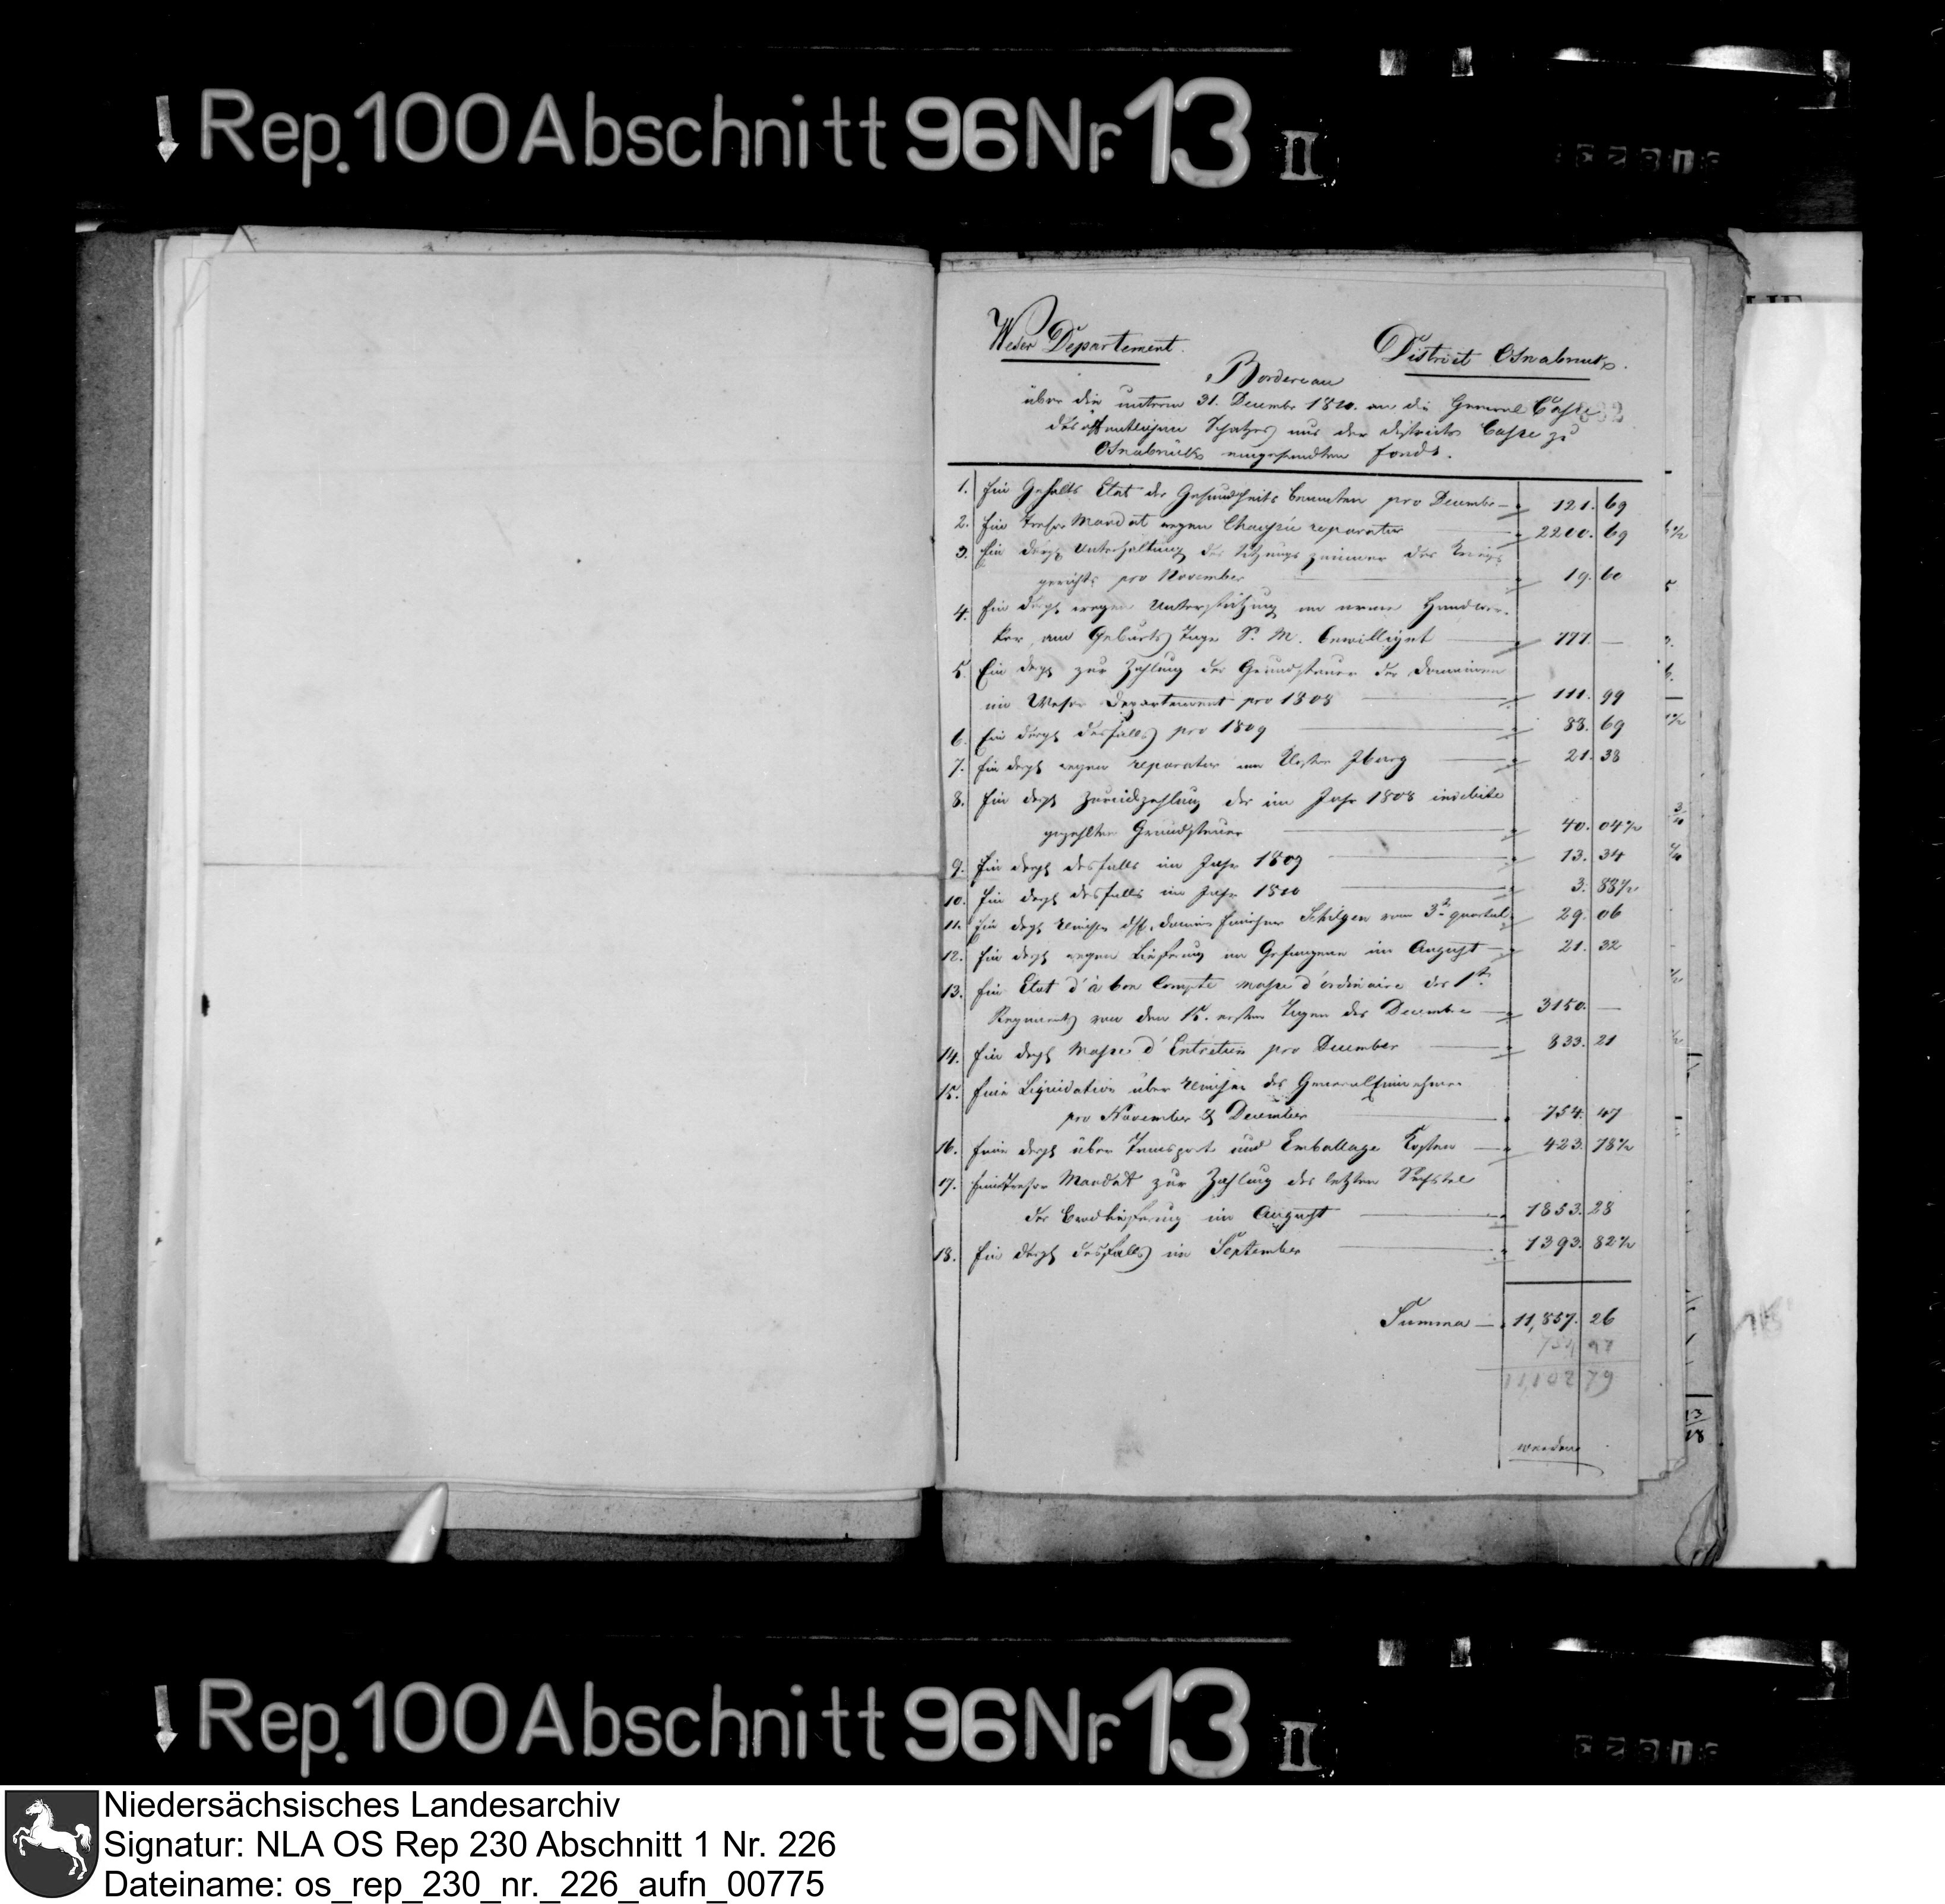 Rep. 100 Abschnitt 96 Nr. 13 II
Weser Departement. District Osnabruck.
Bordereau
über die unterm 31. December 1810. an die General Casse
des öffentlichen Schatzes aus der Districts Casse zu
Osnabrück eingesandten Fonds.
1. Ein Gehalts Etat der Gesundheits Beamten pro December 121. 69
2. Ein Mandat wegen Chaussée reparatur 2200. 69
3. Ein dergl. Unterhaltung des Sitzungs zimmer des Kriegs
gerichts pro November 19. 60
4. Ein dergl. wegen Unterstützung an arme Handwer-
ker, am Geburts Tage S. M. bewilligt 777. —
5. Ein dergl. zur Zahlung der Grundsteuer der Domainen
im Weser Departement pro 1808 111. 99
6. Ein dergl. desfalls pro 1809 88. 69
7. Ein dergl. wegen reparatur am Kloster Iburg 21. 38
8. Ein dergl. Zurückzahlung der im Jahr 1808 indebite
gezahlten Grundsteuer 40. 04½
9. Ein dergl. desfalls im Jahr 1809 13. 34
10. Ein dergl. desfalls im Jahr 1810 3. 88½
11. Ein dergl. Schilgen vom 3t. quartal 29. 06
12. Ein dergl. wegen Lieferung an Gefangene im August 21. 32
13. Ein Etat d'à bon Compte masse d'ordinaire des 1t.
Regiments von den 15. ersten Tagen des December 3150. —
14. Ein dergl. Masse d'Entretien pro December 833. 21
15. Eine Liquidation über Remisen des General Einnehmer
pro November & December 754. 47
16. Eine dergl. über Transport und Emballage Kosten 423. 78½
17. Mandat zur Zahlung des letzten Sechstel
der Brodlieferung im August 1853. 28
18. Ein dergl. desfalls im September 1393. 82½
Summa 11,857. 26
11,102 79
Rep. 100 Abschnitt 96 Nr. 13 II
Niedersächsisches Landesarchiv
Signatur: NLA OS Rep 230 Abschnitt 1 Nr. 226
Dateiname: os_rep_230_nr._226_aufn_00775